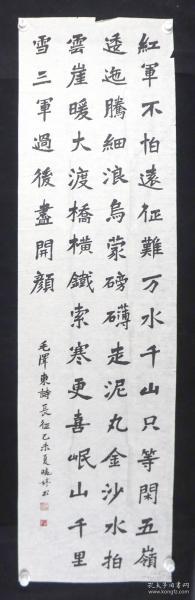 紅軍不怕遠征難万水千山只等閑五嶺
逶迤騰細浪烏蒙磅礴走泥丸金沙水拍
雲崖暖大渡橋橫鐵索寒更喜岷山千里
雪三軍過後盡開顔
毛澤東詩長征乙未夏